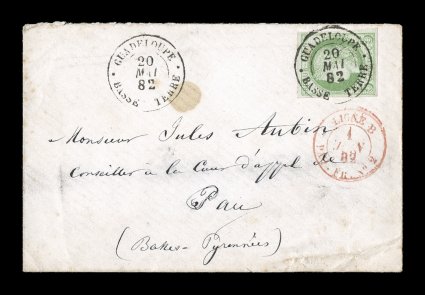 GUADELOUPE
20
MAI
82
BASSE TERRE
GUADELOUPE
20
MAI
82
BASSE TERRE
LIGNE B
1
82
PAQ. FR. N° 2
Monsieur Jules Aubin
Conseiller à la Cour d'appel de
Pau
(Basses-Pyrennées)